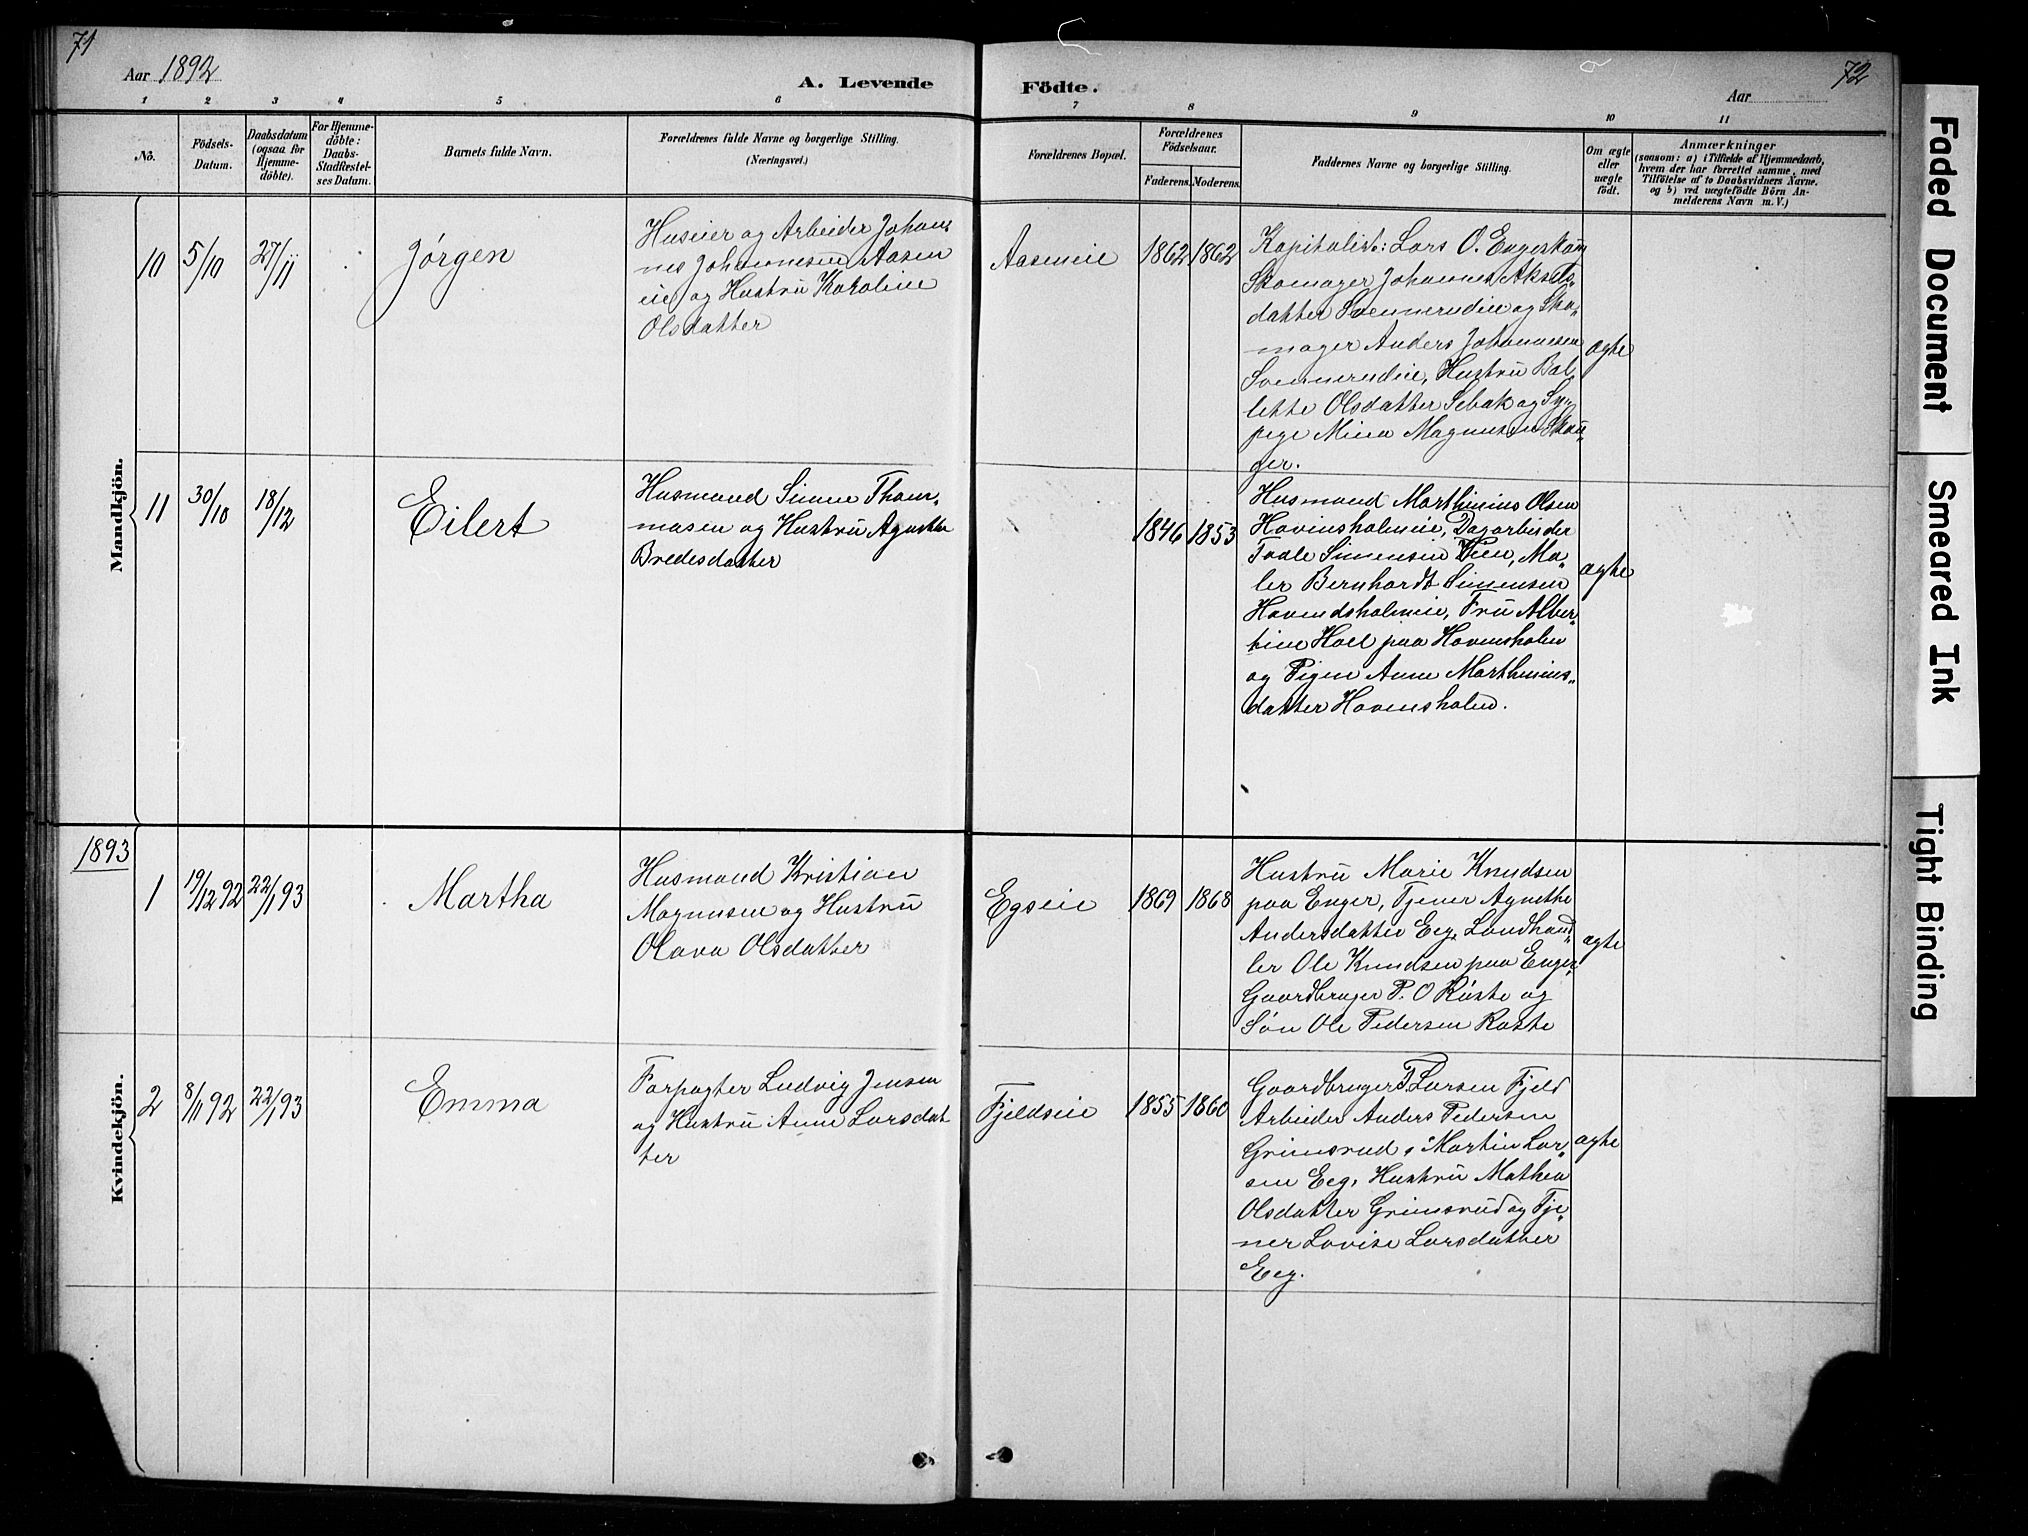 71
Aar 1892
A. Levende
Födte.
Aar
72
1 2 3 4 5 6 7 8 9 10 11
No.
Födsels-
Datum.
Daabsdatum
(ogsaa for
Hjemme-
döbte).
For Hjemme-
döbte:
Daabs-
Stadfæstel-
ses Datum.
Barnets fulde Navn.
Forældrenes fulde Navne og borgerlige Stilling.
(Næringsvei.)
Forældrenes Bopæl.
Forældrenes
Födselsaar.
Faderens. Moderens.
Faddernes Navne og borgerlige Stilling.
Om ægte
eller
uægte
födt.
Anmærkninger
(saasom: a) i Tilfælde af Hjemmedaab,
hvem der har forrettet samme, med
Tilföielse af to Daabsvidners Navne.
og b) ved uægtefödte Börn An-
melderens Navn m. V.)
Mandkjön.
10 5/10 27/11
Jørgen
Huseier og Arbeider Johan-
nes Johannesen Aasen
eie og Hustru Karoline
Olsdatter
Aaseneie
1862 1862
Kapitalist: Lars O. Engeskaug
Skomager Johannes Aksels-
datter Svennerudeie og Sko-
mager Anders Johannesen
Svennerudeie, Hustru Bal-
lette Olsdatter Sebak og Sy-
pige Mina Magnusen Skau-
ger.
ægte
11 30/10 18/12
Eilert
Husmand Simen Thom-
masen og Hustru Agnethe
Bredesdatter
1846 1853
Husmand Marthinius Olsen
Hovinsholmeie, Dagarbeider
Taale Simensen Vien, Ma-
ler Bernhardt Simensen
Hovindsholmeie, Fru Alber-
tine Hoel paa Hovinsholm
og Pigen Anne Marthinius-
datter Hovinsholm.
ægte
1893
Kvindekjön.
1 19/12 92 22/1 93
Martha
Husmand Kristian
Magnusen og Hustru
Olava Olsdatter
Egseie
1869 1868
Hustru Marie Knudsen
paa Enger, Tjener Agnethe
Andersdatter Eeg, Landhand-
ler Ole Knudsen paa Enger
Gaardbruger P. O Røste og
Søn Ole Pedersen Røste
ægte
2 8/11 92 22/1 93
Emma
Forpagter Ludvig Jensen
og Hustru Anne Larsdat
ter
Fjeldseie
1855 1860
Gaardbruger P. Larsen Fjeld
Arbeider Anders Pedersen
Grimsrud, Martin Lar-
sen Eeg, Hustru Mathea
Olsdatter Grimsrud og Tje-
ner Lovise Larsdatter
Eeg.
ægte
Faded Document
Smeared Ink
Tight Binding